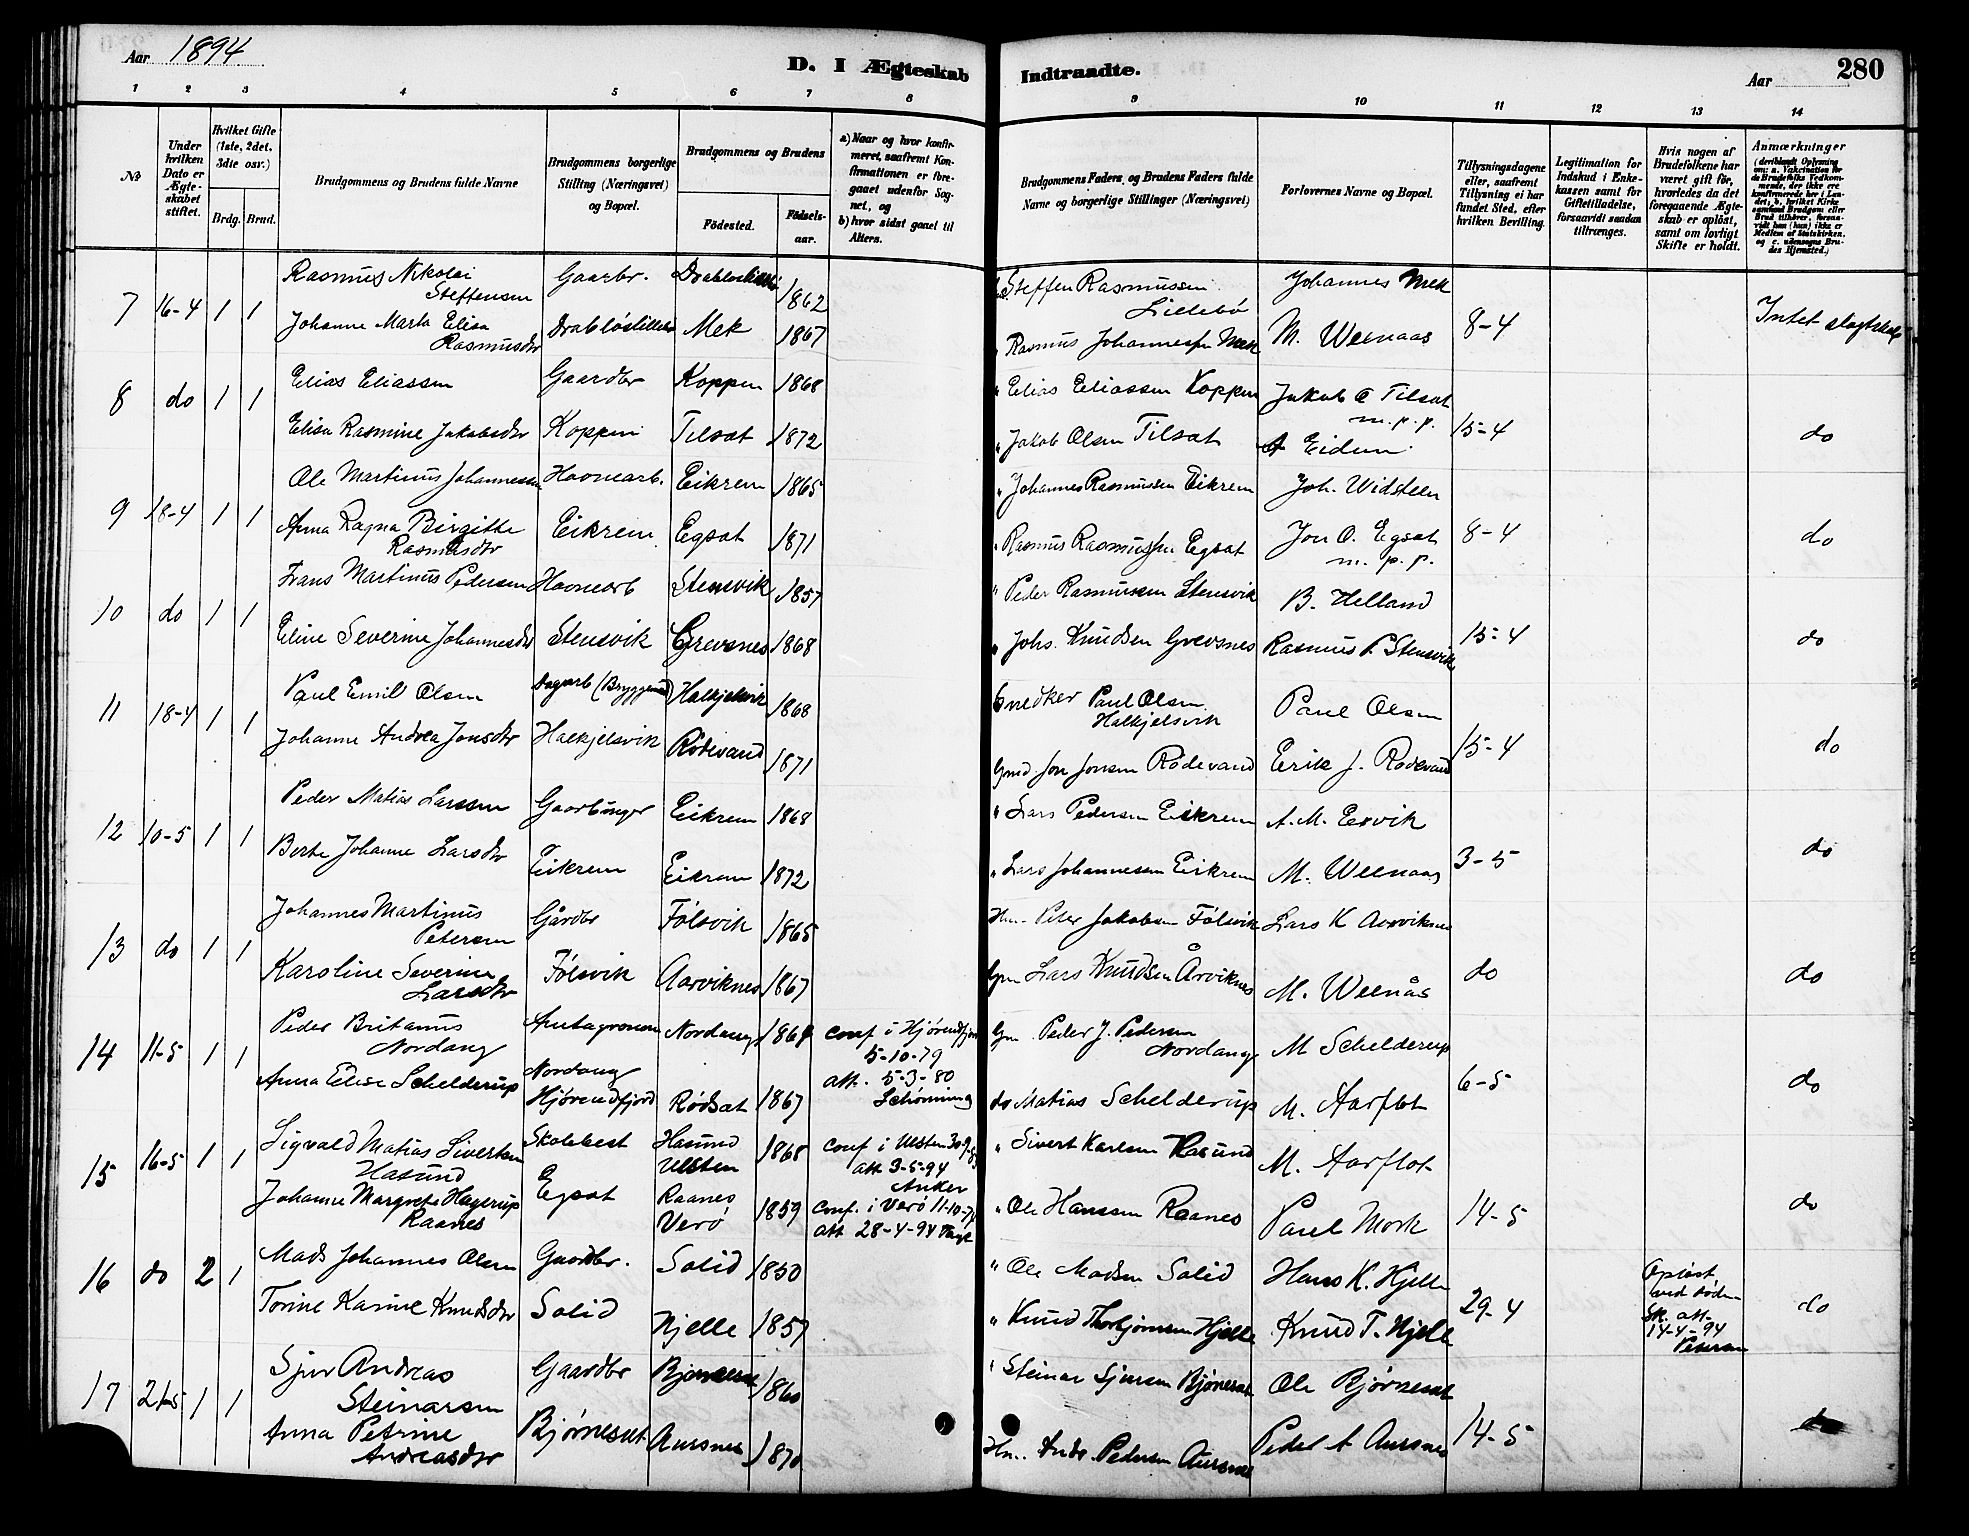 Aar 1894
D. I Ægteskab Indtraadte.
Aar
280
1 2 3 4 5 6 7 8 9 10 11 12 13 14
No
Under hvilken Dato er Ægteskabet stiftet.
Hvilket Gifte (1ste, 2det, 3die osv.)
Brdg. Brud.
Brudgommens og Brudens fulde Navne
Brudgommens borgerlige Stilling (Næringsvei) og Bopæl.
Brudgommens og Brudens
Födested. Födselsaar.
a) Naar og hvor konfirmeret, saafremt Konfirmationen er foregaaet udenfor Sognet, og
b) hvor sidst gaaet til Alters.
Brudgommens Faders og Brudens Faders fulde Navne og borgerlige Stillinger (Næringsvei)
Forlovernes Navne og Bopæl.
Tillysningsdagene eller, saafremt Tillysning ei har fundet Sted, efter hvilken Bevilling.
Legitimation for Indskud i Enkekassen samt for Giftetilladelse, forsaavidt saadan tiltrænges.
Hvis nogen af Brudefolkene har været gift för, hvorledes da det foregaaende Ægteskab er oplöst, samt om lovligt Skifte er holdt.
Anmærkninger
7 16-4 1 1 Rasmus Nikolai Steffensen Gaarbr. 1862 Steffen Rasmussen Lillebø Johannes Mek
Johanne Marta Elisa Rasmusdtr Mek 1867 Rasmus Johannessen Mek M. Weenaas 8-4 Intet slægtskab
8 do 1 1 Elias Eliassen Gaardbr Koppen 1868 " Elias Eliassen Koppen Jakob O Tilsat m.p.p.
Elisa Rasmine Jakobsdtr Koppen Tilsat 1872 " Jakob Olsen Tilsat A Eidem 15-4 do
9 18-4 1 1 Ole Martinus Johannessen Havnearb. Eikrem 1865 " Johannes Rasmussen Eikrem Joh. Widsteen
Anna Ragna Birgitte Rasmusdtr Eikrem Egsat 1871 " Rasmus Rasmussen Egsat Jon O. Egsat m.p.p. 8-4 do
10 do 1 1 Frans Martinus Pedersen Havnearb Stensvik 1857 " Peder Rasmussen Stensvik B. Helland
Eline Severine Johannesdtr Stensvik Grevsnes 1868 " Johs. Knudsen Grevsnes Rasmus P. Stensvik 15-4 do
11 18-4 1 1 Paul Emil Olsen Dagarb Halkjelsvik 1868 Snedker Paul Olsen Halkjelsvik Paul Olsen
Johanne Andrea Jonsdtr Halkjelsvik Rødevand 1871 Gmd Jon Jonsen Rødevand Erik J. Rødevand 15-4 do
12 10-5 1 1 Peder Matias Larssen Gaarbruger Eikrem 1868 " Lars Pedersen Eikrem A. M. Ervik
Berte Johanne Larsdtr Eikrem Eikrem 1872 " Lars Johannessen Eikrem M. Weenaas 3-5 do
13 do 1 1 Johannes Martinus Petersen Gårdbr Følsvik 1865 Hm. Peter Jakobsen Følsvik Lars K Aarviknes
Karoline Severine Larsdtr Følsvik Aarviknes 1867 Gm Lars Knudsen Årviknes M. Weenås do do
14 11-5 1 1 Peder Britanus Nordang Amtagronom Nordang 1864 Conf i Hjørendfjord 5-10-79 Gm Peder J. Pedersen Nordang M Schelderup
Anna Elise Schelderup Nordang Hjørendfjord Rødsat 1867 att. 5-3-80 Schønning do Matias Schelderup M. Aarflot 6-5 do
15 16-5 1 1 Sigvald Matias Sivertsen Hasund Skolebest Hasund Ulsten 1868 Conf i Ulsten att 3-5-94 Anker " Sivert Karlsen Hasund M. Aarflot
Johanne Margrete Hagerup Raanes Egsat Raanes Verø 1859 Conf. i Verø att 28-4-94 " Ole Hanssen Raanes Paul Mork 14-5 do
16 do 2 1 Mads Johannes Olsen Gaardbr. Solid 1850 " Ole Madsen Solid Hans K. Hjelle
Torine Karine Knudsdtr Solid Hjelle 1857 " Knud Thorbjørnsen Hjelle Knud T. Hjelle 29-4 Opløst ved døden Sk. att. 14-4-94 Petersen do
17 21-5 1 1 Sjur Andreas Steinarsen Gaardbr Bjørnesat 1860 " Steinar Sjursen Bjørnesat Ole Bjørnesat
Anna Petrine Andreasdtr Bjørnesat Aursnes 1870 Hm. Andr. Pedersen Aursnes Peder A Aursnes 14-5 do